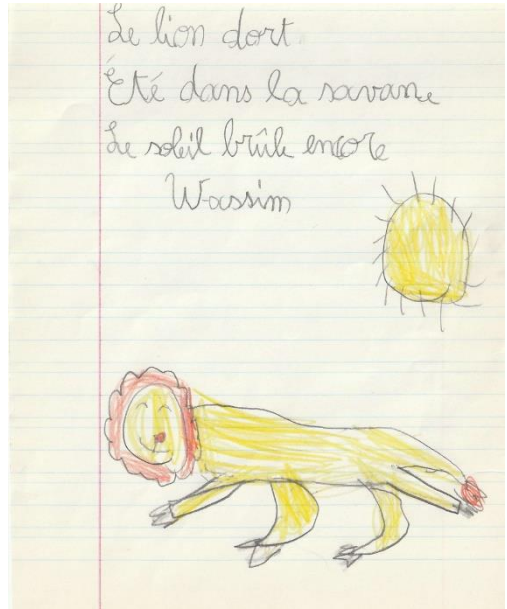 Le lion dort
Été dans la savane
Le soleil brûle encore
Wassim